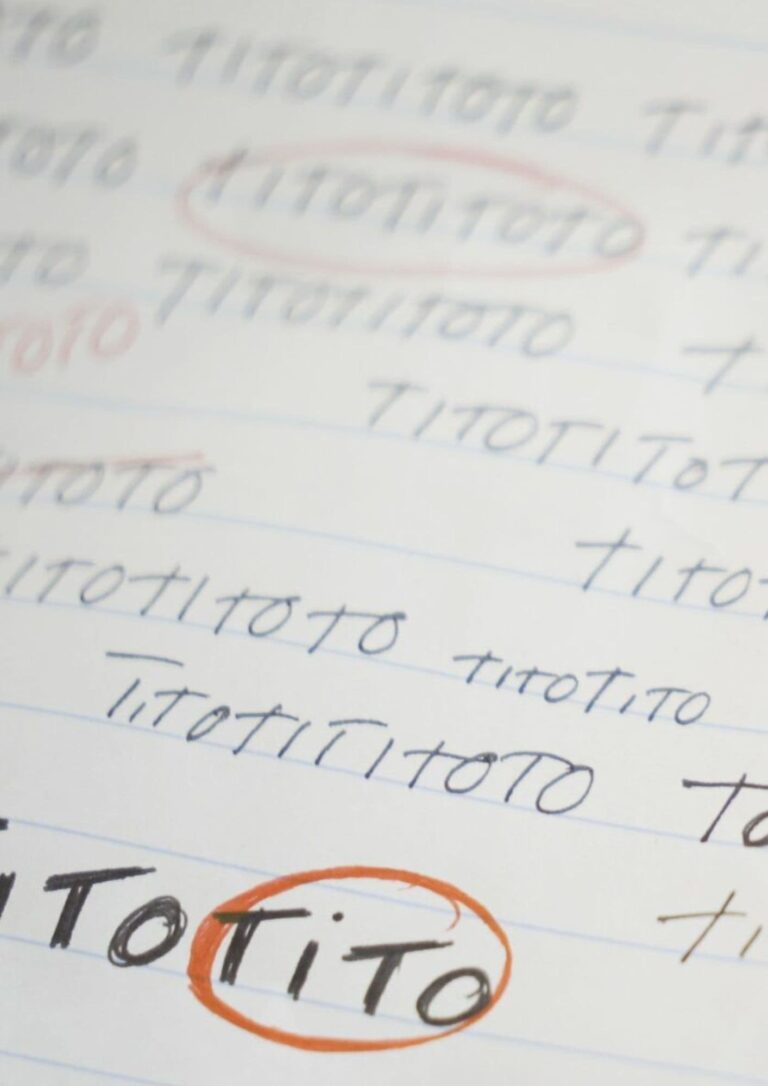 TO TITOTITOTO TIT
TOTO TITOTITOTO TI
TO TITOTITOTO T
TOTO
TITOTITOT
TOTO
TITOT
ITOTITOTO TITOTITO
TiTOTITITOTO TO
iTOTiTO TI